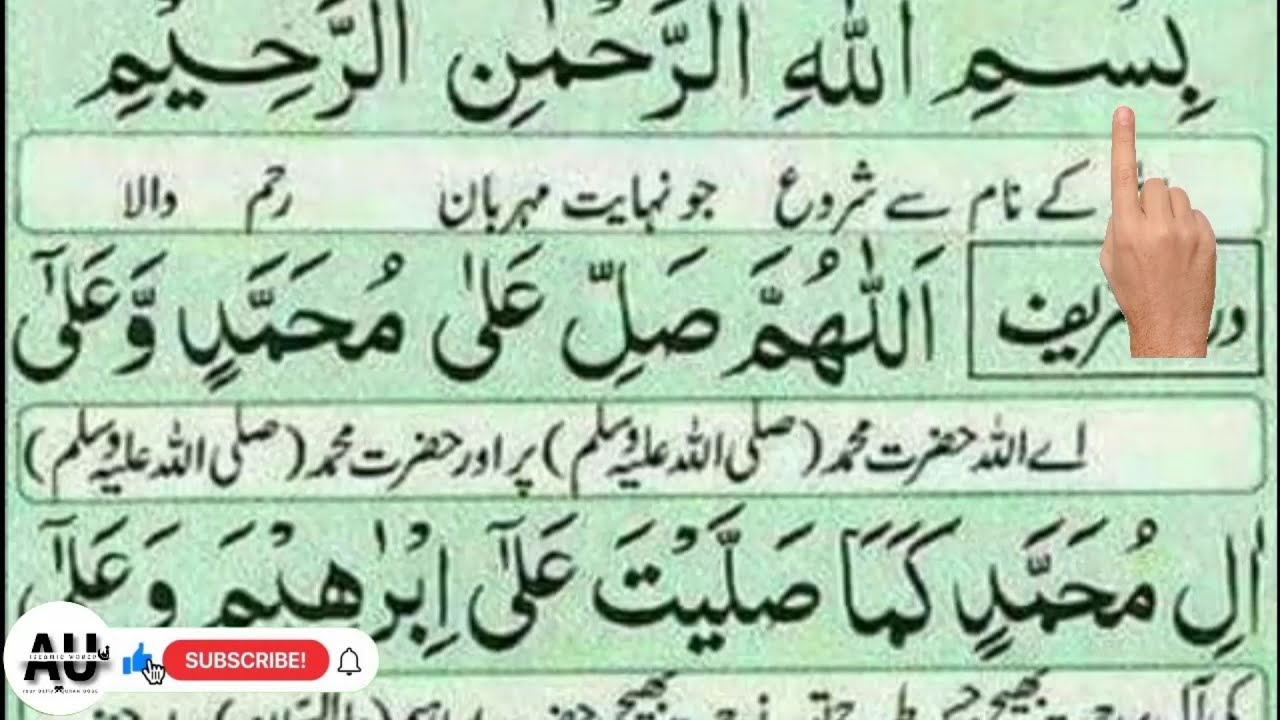 بِسْمِ اللّٰهِ الرَّحْمٰنِ الرَّحِيْمِ
کے نام سے شروع جو نہایت مہربان رحم والا
اَللّٰهُمَّ صَلِّ عَلٰى مُحَمَّدٍ وَّعَلٰٓى
اے اللہ حضرت محمد (صلی اللہ علیہ وسلم) پر اور حضرت محمد (صلی اللہ علیہ وسلم)
اٰلِ مُحَمَّدٍ كَمَا صَلَّيْتَ عَلٰٓى اِبْرٰهِيْمَ وَعَلٰٓى
AU
ISLAMIC WORLD
SUBSCRIBE!